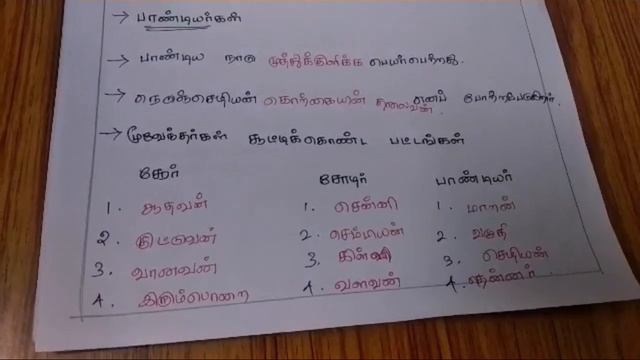 → பாண்டியர்கள்
→ பாண்டிய நாடு முத்துக்குளிக்க பெயர்பெற்றது.
→ நெடுஞ்செழியன் கொற்கையின் தலைவன் எனப் போற்றப்படுகிறார்.
→ மூவேந்தர்கள் சூட்டிக்கொண்ட பட்டங்கள்
சேரர் சோழர் பாண்டியர்
1. ஆதவன் 1. சென்னி 1. மாறன்
2. குட்டுவன் 2. செம்பியன் 2. வழுதி
3. வானவன் 3. கிள்ளி 3. செழியன்
4. இரும்பொறை 4. வளவன் 4. தென்னர்